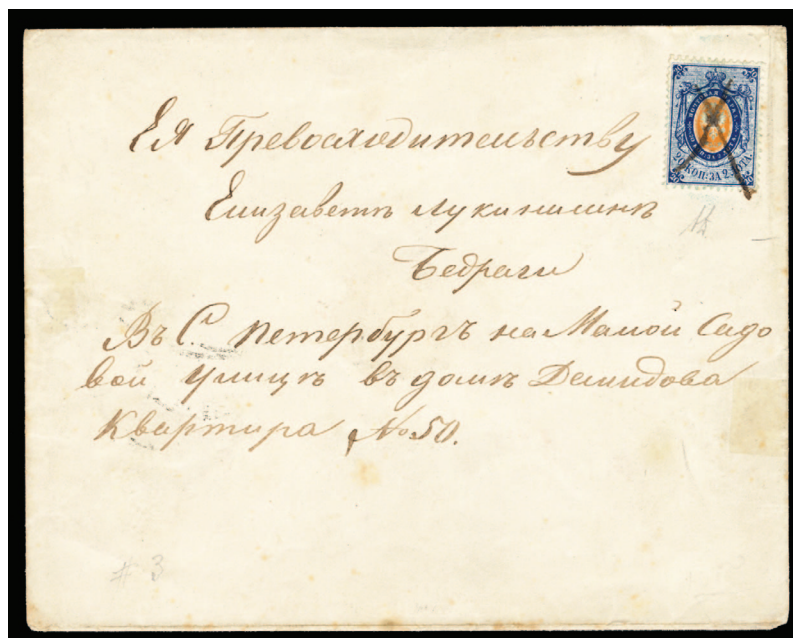 Ея Превосходительству
Елизаветѣ Лукинишнѣ
Бедряги
Въ С. Петербургъ на Малой Садо
вой улицѣ въ домѣ Демидова
Квартира № 50.
20 КОП: ЗА 2 ЛОТА.
# 3